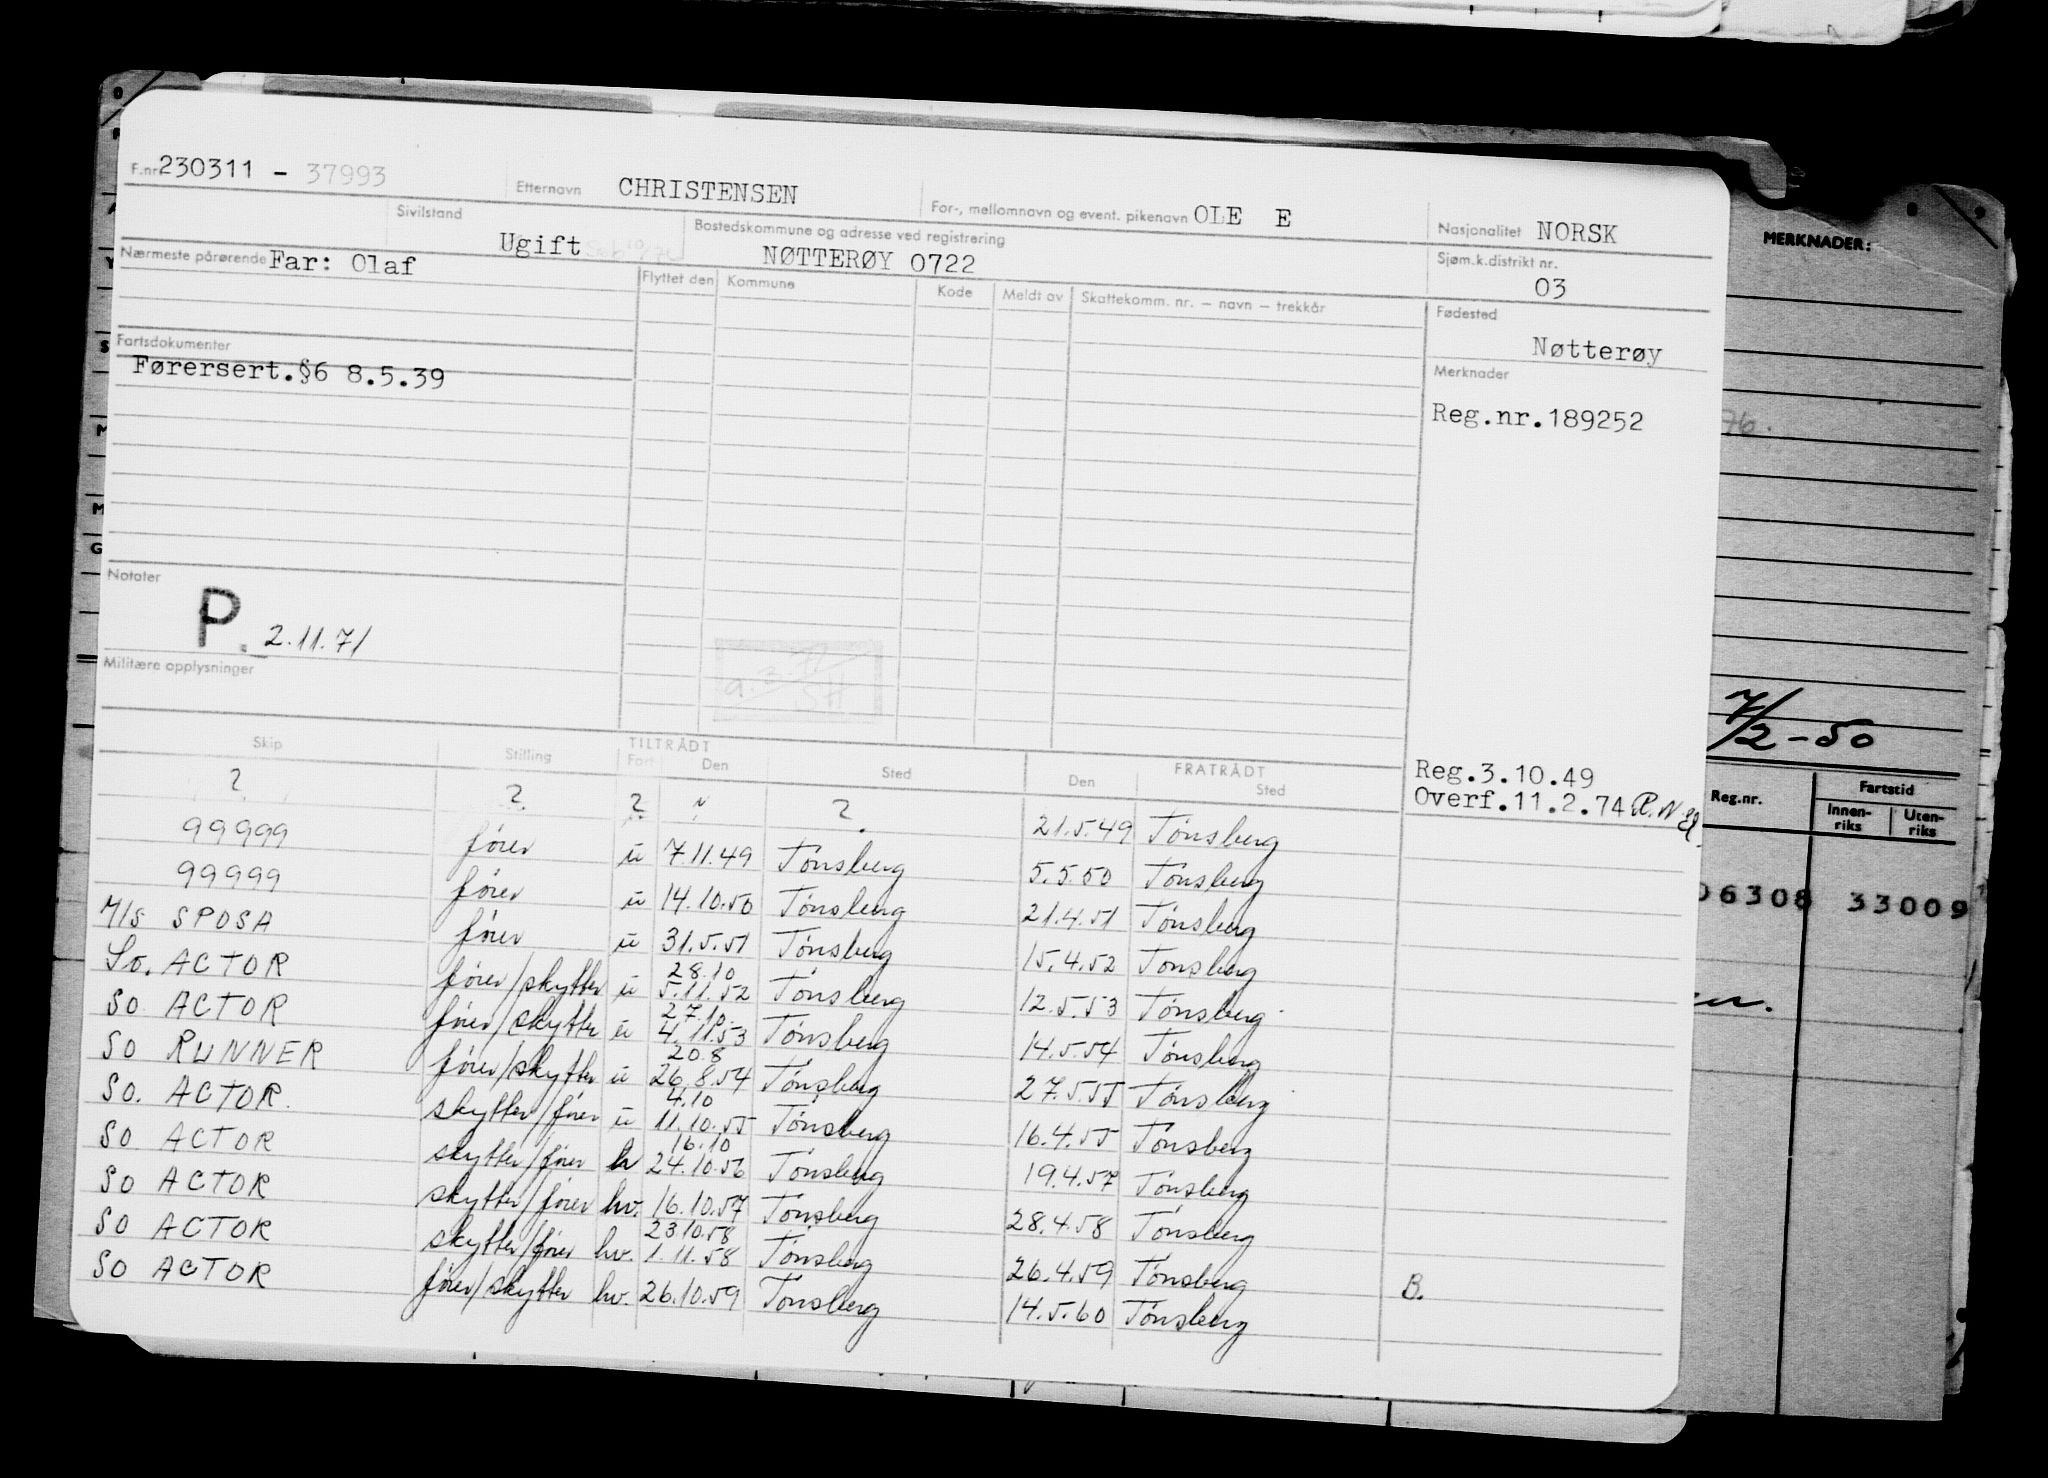 F.nr. 230311 - 37993 Etternavn CHRISTENSEN For-, mellomnavn og event. pikenavn OLE E Nasjonalitet NORSK
Sivilstand Ugift Bostedskommune og adresse ved registrering NØTTERØY 0722 Sjøm.k.distrikt nr. 03
Nærmeste pårørende Far: Olaf Flyttet den Kommune Kode Meldt av Skattekomm. nr. – navn – trekkår Fødested
Nøtterøy
Fartsdokumenter Merknader
Førersert.§6 8.5.39
Reg.nr.189252
Notater
P. 2.11.71
Militære opplysninger
Reg.3.10.49
Overf.11.2.74
Skip Stilling TILTRÅDT Fart Den Sted FRATRÅDT Den Sted
? ? ? " ? 21.5.49 Tønsberg
99999 fører u 7.11.49 Tønsberg 5.5.50 Tønsberg
99999 fører u 14.10.50 Tønsberg 21.4.51 Tønsberg
M/S SPOSA fører u 31.5.51 Tønsberg 15.4.52 Tønsberg
So. ACTOR fører/skytter u 28.10 5.11.52 Tønsberg 12.5.53 Tønsberg
SO ACTOR fører/skytter u 27.10. 4.11.53 Tønsberg 14.5.54 Tønsberg
SO RUNNER fører/skytter u 20.8 26.8.54 Tønsberg 27.5.55 Tønsberg
SO. ACTOR. skytter/fører u 4.10 11.10.55 Tønsberg 16.4.55 Tønsberg
SO ACTOR skytter/fører h 16.10 24.10.56 Tønsberg 19.4.57 Tønsberg
SO ACTOR skytter/fører hv. 16.10.57 Tønsberg 28.4.58 Tønsberg
SO ACTOR skytter/fører hv. 23.10.58 1.11.58 Tønsberg 26.4.59 Tønsberg
SO ACTOR fører/skytter hv. 26.10.59 Tønsberg 14.5.60 Tønsberg
B.
MERKNADER:
76.
7/2-50
Reg.nr. Fartstid
Innen-riks Uten-riks
06308 33009